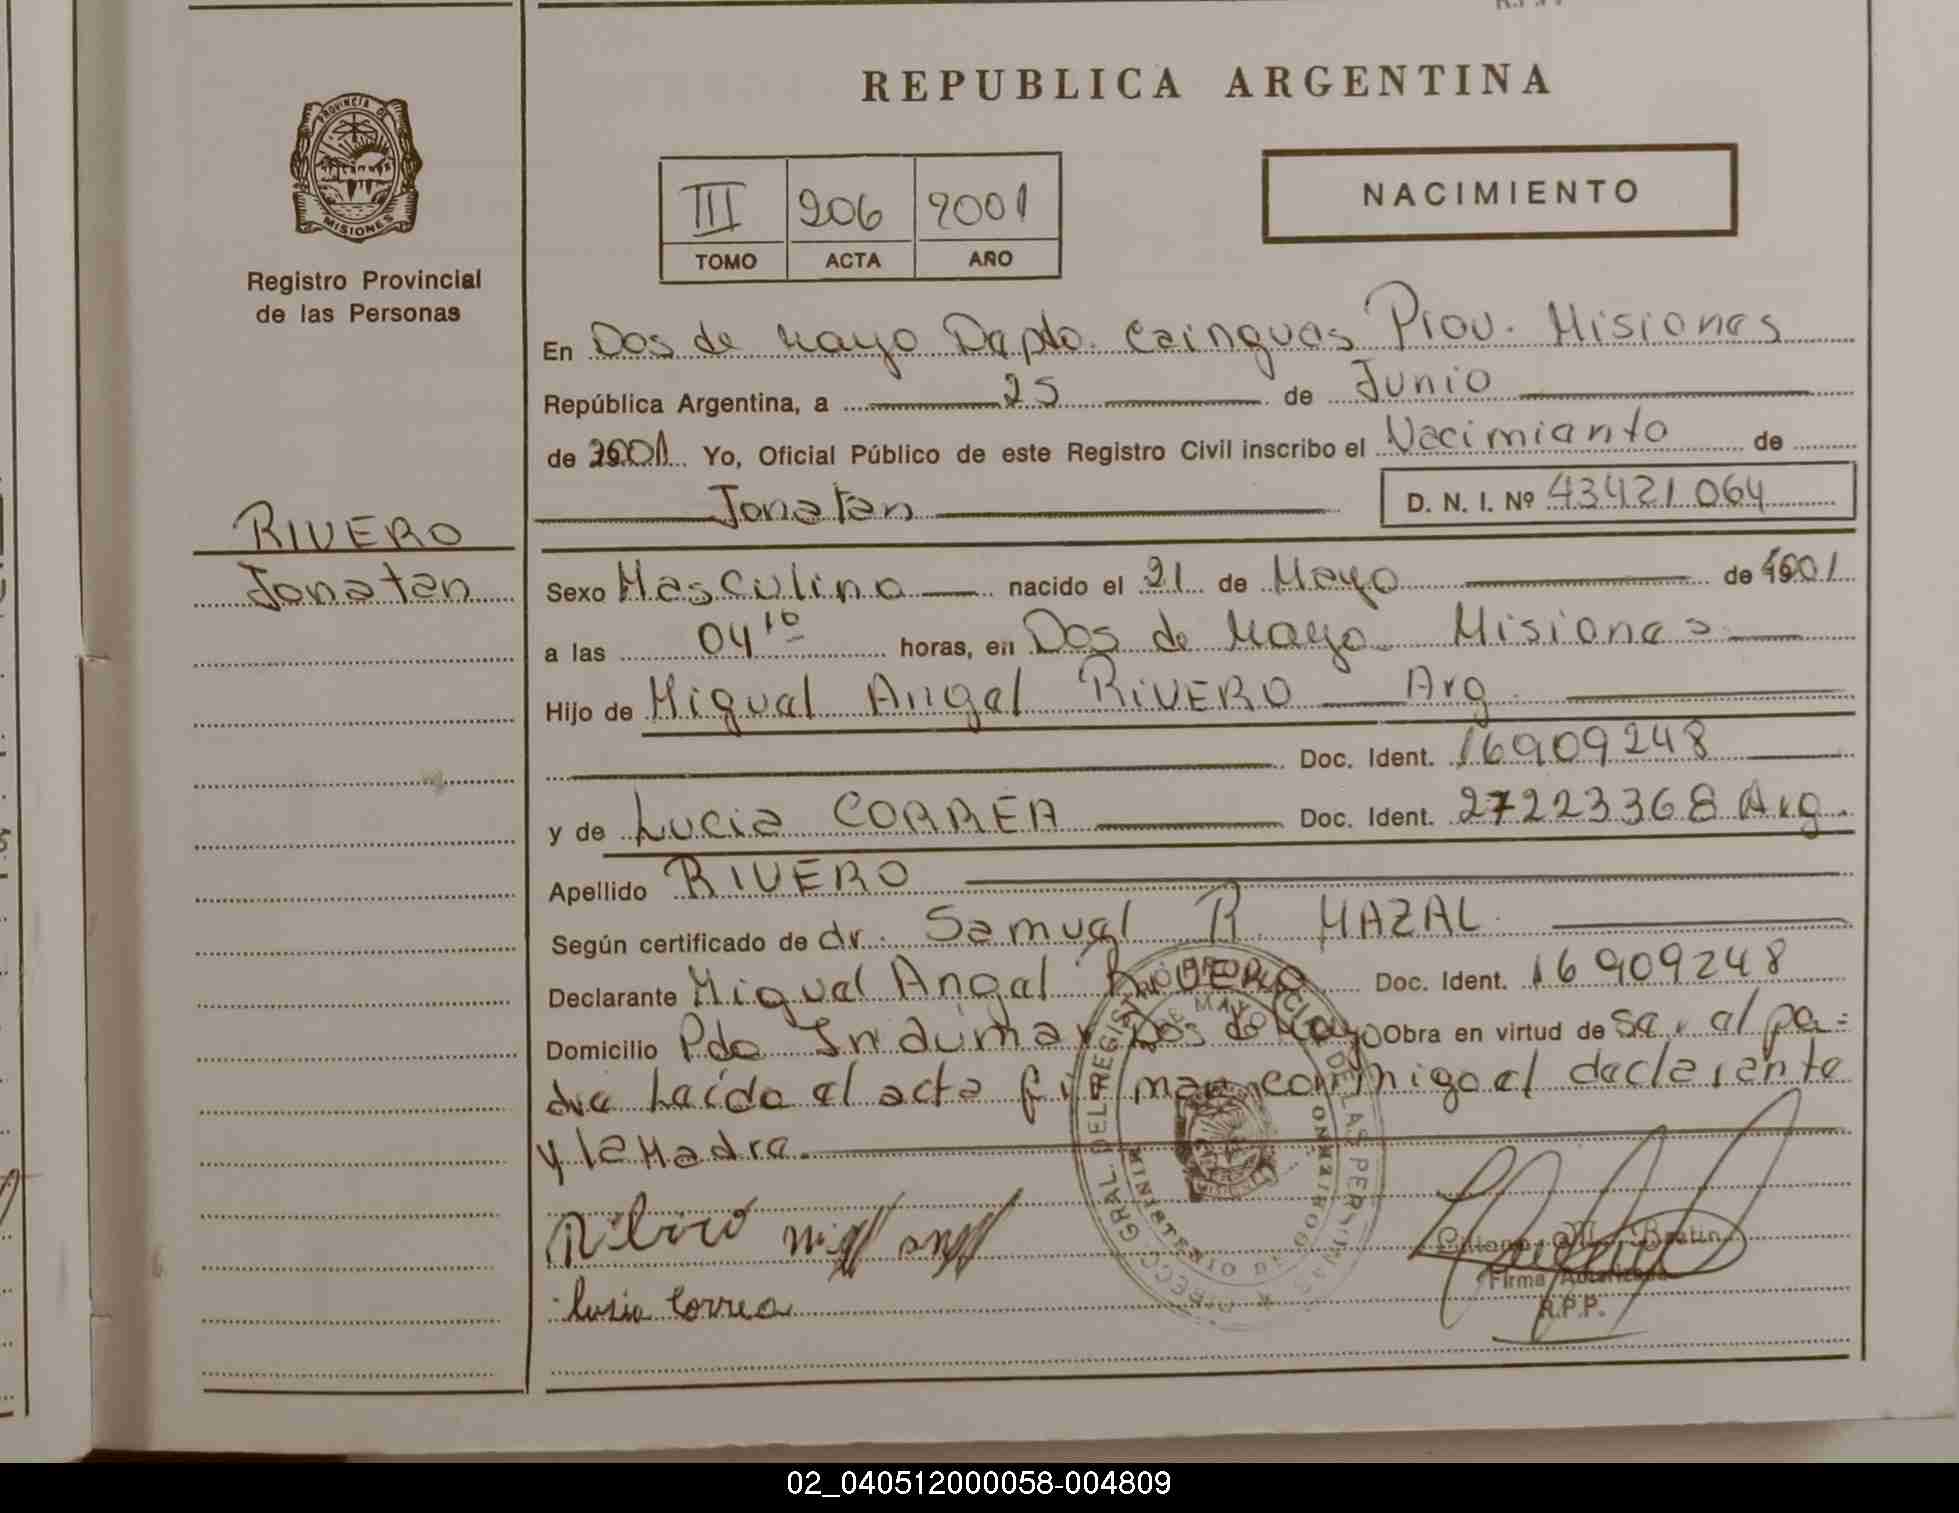 REPUBLICA ARGENTINA
PROVINCIA DE MISIONES
Registro Provincial
de las Personas
III 206 2001
TOMO ACTA AÑO
NACIMIENTO
En Dos de Mayo Dapto. Cainguas Prov. Misiones
República Argentina, a 25 de Junio
de 2001 Yo, Oficial Público de este Registro Civil inscribo el Nacimianto de
Jonatan D. N. I. Nº 43421064
RIVERO
Jonatan
Sexo Masculino nacido el 21 de Mayo de 2001
a las 04 10 horas, en Dos de Mayo Misiones
Hijo de Migual Angal RIVERO Arg.
Doc. Ident. 16909248
y de Lucia CORREA Doc. Ident. 27223368 Arg.
Apellido RIVERO
Según certificado de dr. Samual R. MAZAL
Declarante Migual Angal RIVERO Doc. Ident. 16909248
Domicilio Pdo Indumar Dos de Mayo Obra en virtud de sar al pa=
dra Laída al acta firman conmigo al daclaranta
y la Madra.
DIRECC. GRAL. DEL REGISTRO PROVINCIAL DE LAS PERSONAS
MINISTERIO DE GOBIERNO
DOS DE MAYO
Lucia Correa
Firma Autorizada
R.P.P.
02_040512000058-004809